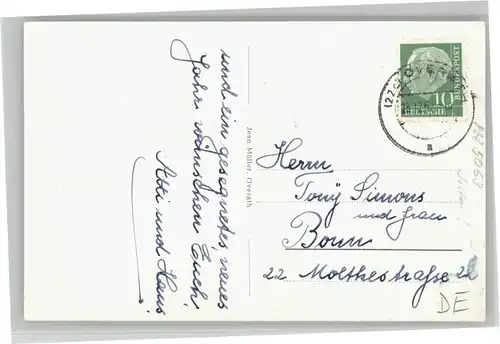 und ein gesegnetes neues
Jahr wünschen Euch
Abi und Hans
Jean Müller, Overath
(22c) OVERATH
a
10
DEUTSCHE
BUNDESPOST
Herrn
Tony Simons
und Frau
Bonn
22 Moltkestraße 22
DE